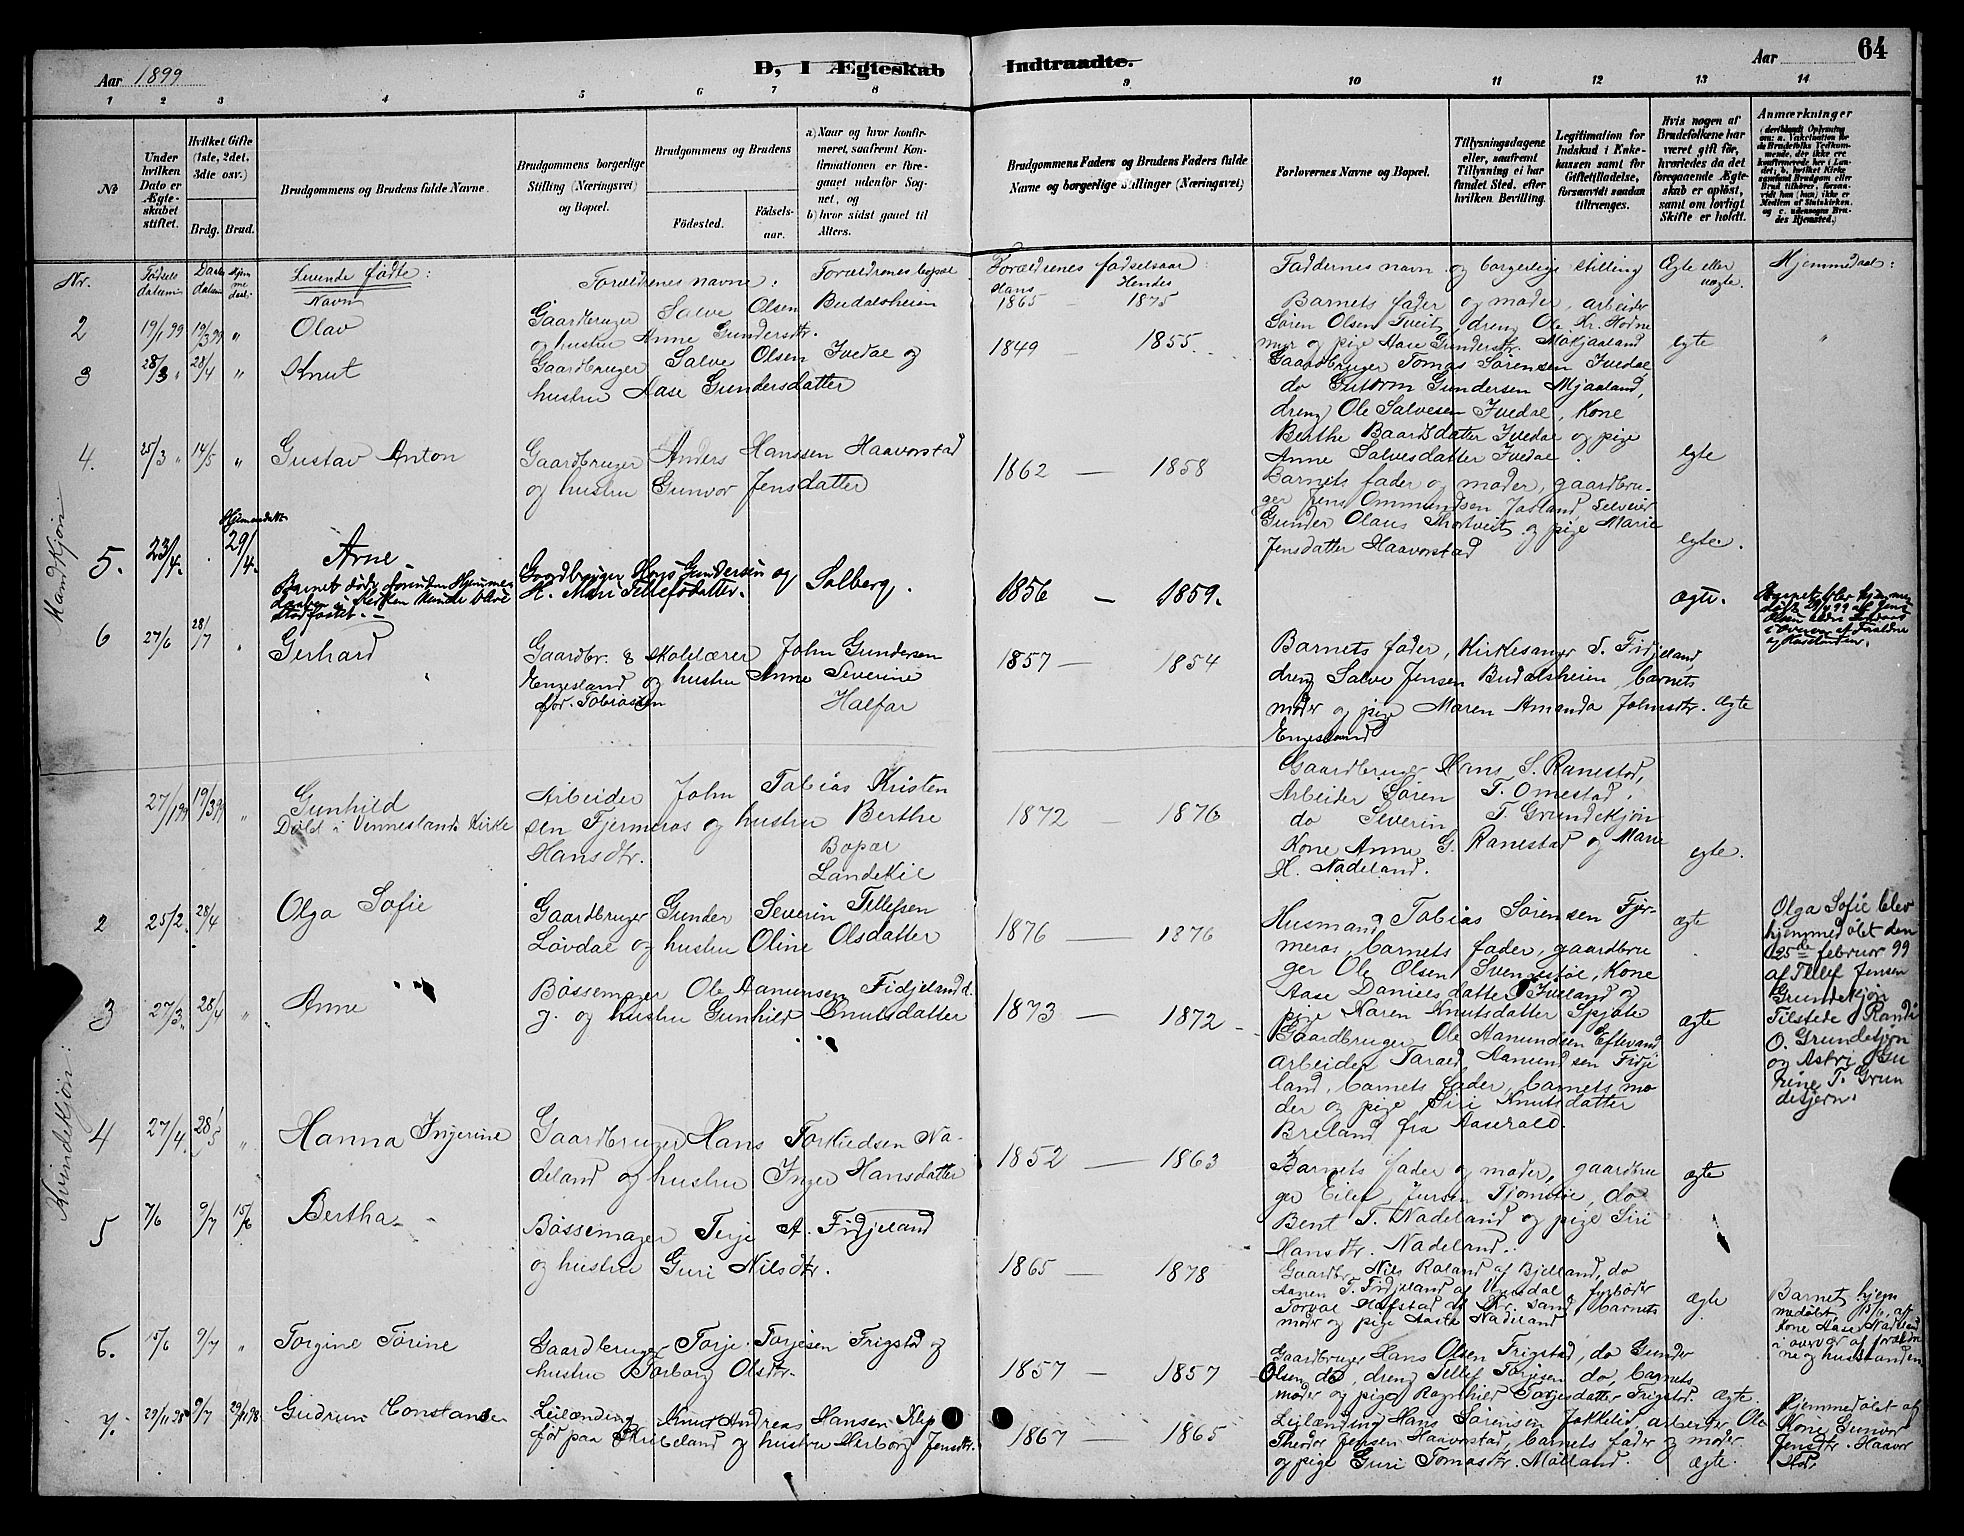 Aar 1899
D, I Ægteskab Indtraadte.
Aar 64
1 2 3 4 5 6 7 8 9 10 11 12 13 14
No
Under hvilken Dato er Ægteskabet stiftet.
Hvilket Gifte (1ste, 2det. 3die osv.)
Brdg. Brud.
Brudgommens og Brudens fulde Navne.
Brudgommens borgerlige Stilling (Næringsvei) og Bopæl.
Brudgommens og Brudens
Fødested. Fødselsaar.
a) Naar og hvor konfirmeret, saafremt Konfirmationen er foregaaet udenfor Sognet, og
b) hvor sidst gaaet til Alters.
Brudgommens Faders og Brudens Faders fulde Navne og borgerlige Stillinger (Næringsvei)
Forlovernes Navne og Bopæl.
Tillysningsdagene eller, saafremt Tillysning ei har fundet Sted, efter hvilken Bevilling.
Legitimation for Indskud i Enkekassen samt for Giftetilladelse, forsaavidt saadan tiltrænges.
Hvis nogen af Brudefolkene har været gift før, hvorledes da det foregaaende Ægteskab er opløst, samt om lovligt Skifte er holdt.
Anmærkninger
Nr.
Fødsels datum
Daabs datum
Hjemme daab.
Levende fødte:
Navn
Forældrenes navne:
Forældrenes bopæl
Forældrenes fødselsaar
Hans Hendes
Faddernes navn og borgerlige stilling
Ægte eller uægte.
Hjemmedaab:
Mandkjøn
2 19/1 99 19/3 99 " Olav
Gaardbruger Salve Olsen Budalsheien
og hustru Anne Gundersdtr.
1865 – 1875
Barnets fader og moder, arbeider
Søren Olsen Tveit, dreng Ole Kr. Hodne
myr og pige Aase Gundersdtr. Mokjaaland
egte "
3 28/3 " 28/4 " Knut
Gaardbruger Salve Olsen Ivedal og
hustru Aase Gundersdatter
1849 – 1855
Gaardbruger Tomas Sørensen Ivedal,
do Guttorm Gundersen Mjaaland,
dreng Ole Salvesen Ivedal, Kone
Berthe Baardsdatter Ivedal og pige
Anne Salvesdatter Ivedal.
egte
4. 25/3 " 14/5 " Gustav Anton
Gaardbruger Anders Hanssen Haavorstad
og hustru Gunvor Jensdatter
1862 — 1858
Barnets fader og moder, gaardbru-
ger Jens Ommundsen Javland, Selveier
Gunder Olaus Thortveit og pige Marie
Jensdatter Haavorstad
egte.
5. 23/4. Hjemmedøbt 29/4. Arne
Barnet døde forinden Hjemme-
daaben i Kirken kunde blive
stadfæstet.–
Gaardbruger Hans Gundersen og
H. Mari Tellefsdatter.
Solberg.
1856 – 1859.
ægte.
Barnet blev hjemme
døbt 29/4 99 af Jens
Olsen
i Overvær af Forældre
og Husstanden.
6 27/6 28/7 " Gerhard
Gaardbr. & skolelærer John Gundersen
Engesland og hustru Anne Severine
før. Tobiassen Halfar
1857 — 1854
Barnets fader, Kirkesanger S. Fidjeland,
dreng Salve Jensen Budalsheien, barnets
moder og pige Maren Amanda Johnsdtr.
Engesland
Ægte
Kvindekjøn:
27/1 99 19/3 99 " Gunhild
Døbt i Vennesland Kirke
Arbeider John Tobias Kristen
sen Fjermeros og hustru Berthe
Hansdtr. Bopæl
Landekil
1872 – 1876
Gaardbruger Hans S. Ranestad,
Arbeider Søren T. Omestad,
do Severin T. Grundekjøn
Kone Anne G. Ranestad og Marie
H. Nadeland.
egte.
2 25/2. 28/4 Olga Sofie
Gaardbruger Gunder Severin Tellefsen
Løvdal og hustru Oline Olsdatter
1876 — 1876
Husmand Tobias Sørensen Fjer-
meros, barnets fader, gaardbru
ger Ole Olsen Svengestøl, Kone
Aase Danielsdatter Iveland og
pige Karen Knutsdatter Spjote
ægte
Olga Sofie blev
hjemmedøbt den
25de februar 99
af Tellef Jensen
Grundekjøn
Tilstede Randi
O. Grundekjøn
og Astri Gu
rine T. Grun
dekjøn.
3 27/3. 28/4 " Anne
Bøssemager Ole Aamunsen Fidjeland d.
y. og hustru Gunhild Knutsdatter
1873 — 1872
Gaardbruger Ole Aamundsen Eftevand
arbeider Tarald Aamundsen Fidje
land, barnets fader, barnets mo
der og pige Siri Knutsdatter
Breland fra Aaserald.
ægte
4 27/4. 28/5 " Hanna Ingerine
Gaardbruger Hans Torkildsen Na-
deland og hustru Inger Hansdatter
1852 — 1863
Barnets fader og moder, gaardbru
ger Eilef Jursen Tjomstøl, do
Bent T. Nadeland og pige Siri
Hansdtr. Nadeland.
ægte
5 7/6 9/7 15/6 Bertha
Bøssemager Terje A. Fidjeland
og hustru Guri Nilsdtr.
1865 — 1878
Gaardbr. Nils Roland af Bjelland, do
Aanen T. Fidjeland af Vensdal, fyrbøder
Torval Hafstad af Kr. sand, barnets
moder og pige Aaste Nadeland
ægte
Barnet hjem
medøbt 15/6 af
Kone Aase Nadeland
i overvær af foreldre
ne og husstanden
6. 15/6 9/7 " Torgine Torine
Gaardbruger Torje Torjesen Frigstad og
hustru Torborg Olsdtr.
1857 — 1857
Gaardbruger Hans Olsen Frigstad, do Gunder
Olsen do, dreng Tellef Torjesen do, barnets
moder og pige Ragnhild Torjesdatter Frigstad.
ægte
7. 29/11 98 9/7 29/11 98 Gudrun Constanse
Leilænding Knut Andreas Hansen Klep
før paa Skribeland og hustru Herborg Jensdtr.
1867 — 1865
Leilænding Hans Sørensen Jokkelid, arbeider Ole
Theodor Jensen Haavorstad, barnets fader og moder
og pige Guri Tomasdtr. Mølland.
ægte.
Hjemmedøbt af
Kone Gunvor
Jensdtr. Haavor
stad.